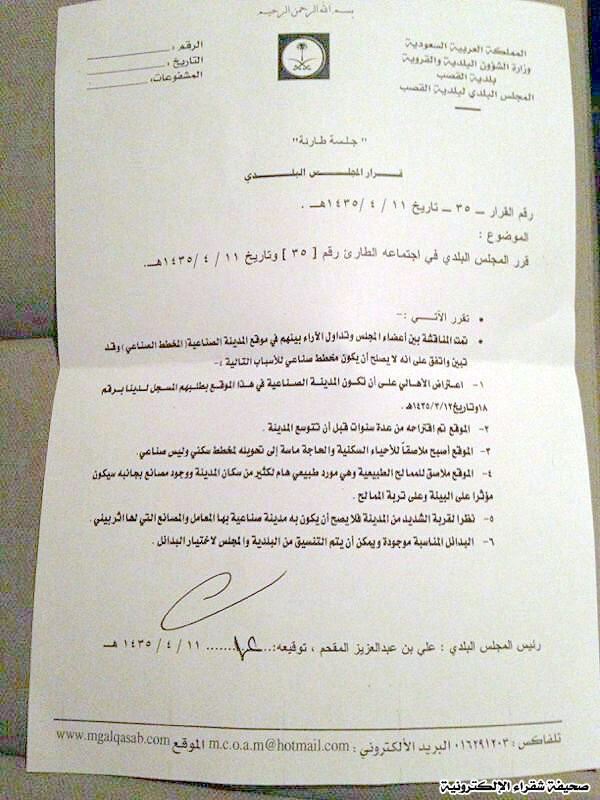 بسم الله الرحمن الرحيم
المملكة العربية السعودية
وزارة الشؤون البلدية والقروية
بلدية القصب
المجلس البلدي لبلدية القصب
الرقم :
التاريخ :
المشفوعات:
" جلسة طارئة "
قرار المجلس البلدي
رقم القرار – ٣٥ – تاريخ ١١ / ٤ / ١٤٣٥هـ .
الموضوع :
قرر المجلس البلدي في اجتماعه الطارئ رقم [ ٣٥ ] وتاريخ ١١ / ٤ / ١٤٣٥هـ.
• تقرر الآتي :-
• تمت المناقشة بين أعضاء المجلس وتداول الأراء بينهم في موقع المدينة الصناعية (المخطط الصناعي) وقد
تبين واتفق على انه لا يصلح أن يكون مخطط صناعي للأسباب التالية :-
١- اعتراض الأهالي على أن تكون المدينة الصناعية في هذا الموقع بطلبهم المسجل لدينا برقم
١٨وتاريخ١٤٣٥/٣/١٢هـ .
٢- الموقع تم اقتراحه من عدة سنوات قبل أن تتوسع المدينة .
٣- الموقع أصبح ملاصقاً للأحياء السكنية والحاجة ماسة إلى تحويله لمخطط سكني وليس صناعي.
٤- الموقع ملاصق للممالح الطبيعية وهي مورد طبيعي هام لكثير من سكان المدينة ووجود مصانع بجانبه سيكون
مؤثرا على البيئة وعلى تربة الممالح .
٥- نظرا لقربة الشديد من المدينة فلا يصح أن يكون به مدينة صناعية بها المعامل والمصانع التي لها اثر بيئي .
٦- البدائل المناسبة موجودة ويمكن أن يتم التنسيق من البلدية والمجلس لاختيار البدائل .
رئيس المجلس البلدي : علي بن عبدالعزيز المقحم ، توقيعه:............ ١١ / ٤ / ١٤٣٥ هـ
تلفاكس : ٠١٦٢٩١٢٠٣ البريد الألكتروني : m.c.o.a.m@hotmail.com الموقع www.mgalqasab.com
صحيفة شقراء الإلكترونية